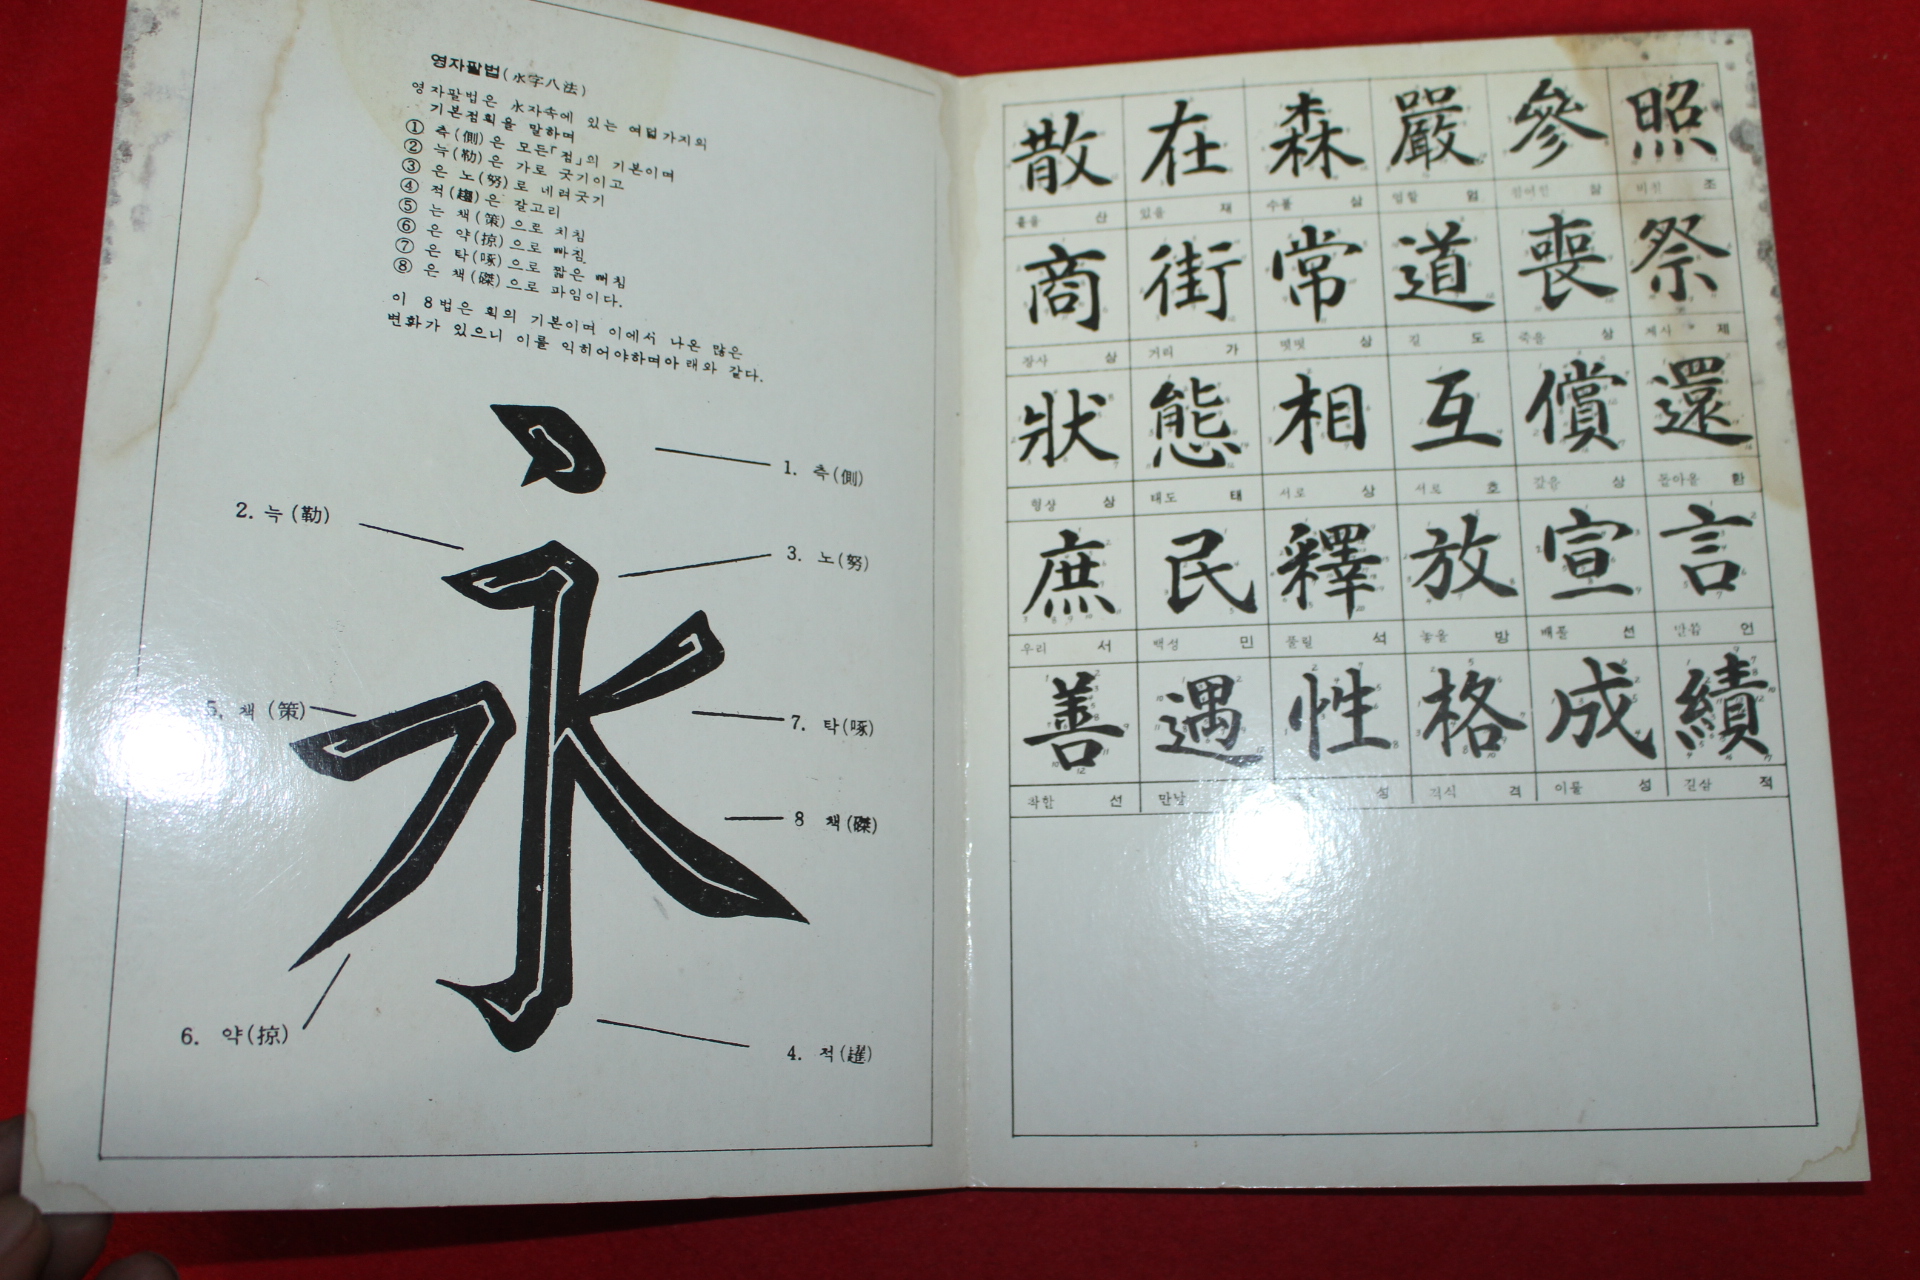 영자팔법(永字八法)
영자팔법은 永자속에 있는 여덟가지의
기본점획을 말하며
① 측(側)은 모든「점」의 기본이며
② 늑(勒)은 가로 긋기이고
③ 은 노(努)로 네려긋기
④ 적(趯)은 갈고리
⑤ 는 책(策)으로 치침
⑥ 은 약(掠)으로 빠짐
⑦ 은 탁(啄)으로 짧은 삐침
⑧ 은 책(磔)으로 파임이다.
이 8법은 획의 기본이며 이에서 나온 많은
변화가 있으니 이를 익히어야하며아래와 같다.
1. 측(側)
2. 늑(勒)
3. 노(努)
5. 책(策)
7. 탁(啄)
8 책(磔)
6. 약(掠)
4. 적(趯)
散 在 森 嚴 參 照
흩을 산 있을 재 수풀 삼 엄할 엄 삼 비칠 조
商 街 常 道 喪 祭
장사 상 거리 가 떳떳 상 길 도 죽을 상 제사 제
狀 態 相 互 償 還
형상 상 태도 태 서로 상 서로 호 갚을 상 돌아올 환
庶 民 釋 放 宣 言
우리 서 백성 민 풀릴 석 놓을 방 베풀 선 말씀 언
善 遇 性 格 成 績
착할 선 만날 성 격식 격 이룰 성 길삼 적